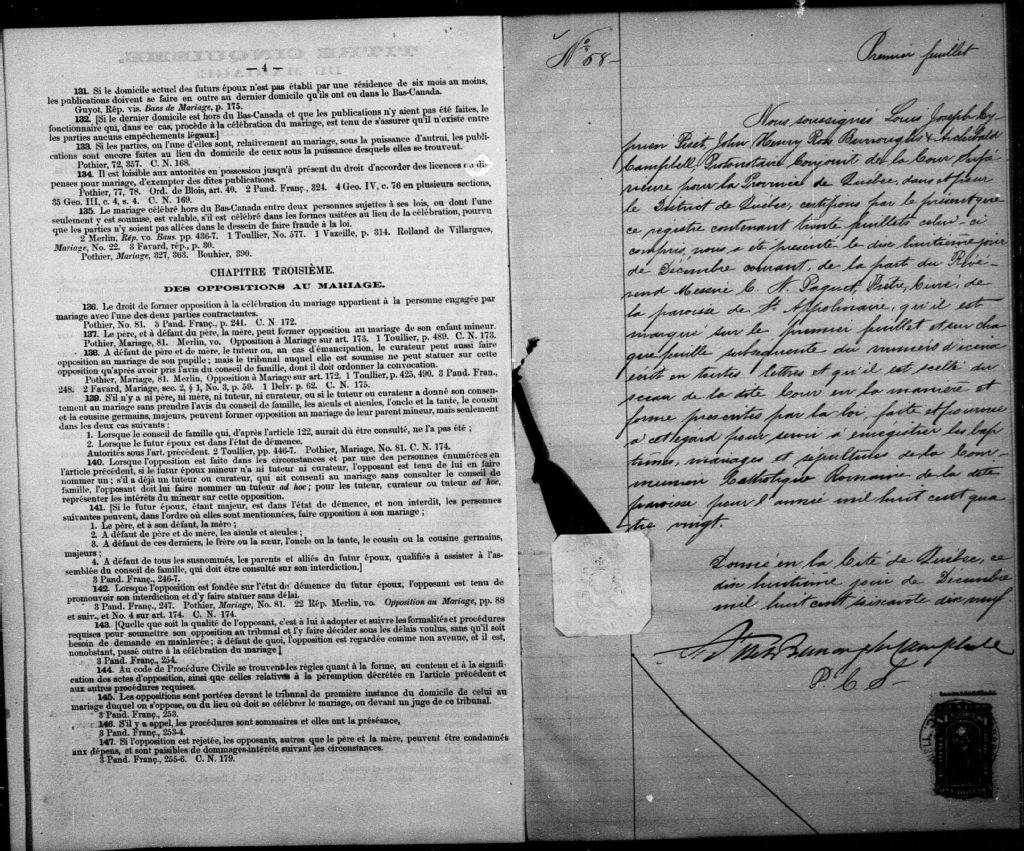 — 4 —
131. Si le domicile actuel des futurs époux n'est pas établi par une résidence de six mois au moins,
les publications doivent se faire en outre au dernier domicile qu'ils ont eu dans le Bas-Canada.
Guyot, Rép. vis. Bans de Mariage, p. 175.
132. [Si le dernier domicile est hors du Bas-Canada et que les publications n'y aient pas été faites, le
fonctionnaire qui, dans ce cas, procède à la célébration du mariage, est tenu de s'assurer qu'il n'existe entre
les parties aucuns empêchements légaux.]
133. Si les parties, ou l'une d'elles sont, relativement au mariage, sous la puissance d'autrui, les publi-
cations sont encore faites au lieu du domicile de ceux sous la puissance desquels elles se trouvent.
Pothier, 72, 357. C. N. 168.
134. Il est loisible aux autorités en possession jusqu'à présent du droit d'accorder des licences ou dis-
penses pour mariage, d'exempter des dites publications.
Pothier, 77, 78. Ord. de Blois, art. 40. 2 Pand. Franç., 324. 4 Geo. IV, c. 76 en plusieurs sections,
35 Geo. III, c. 4, s. 4. C. N. 169.
135. Le mariage célébré hors du Bas-Canada entre deux personnes sujettes à ses lois, ou dont l'une
seulement y est soumise, est valable, s'il est célébré dans les formes usitées au lieu de la célébration, pourvu
que les parties n'y soient pas allées dans le dessein de faire fraude à la loi.
2 Merlin, Rép. vo. Bans. pp. 436-7. 1 Toullier, No. 577. 1 Vazeille, p. 314. Rolland de Villargues,
Mariage, No. 22. 3 Favard, rép., p. 30.
Pothier, Mariage, 327, 363. Bouhier, 390.
CHAPITRE TROISIÈME.
DES OPPOSITIONS AU MARIAGE.
136. Le droit de former opposition à la célébration du mariage appartient à la personne engagée par
mariage avec l'une des deux parties contractantes.
Pothier, No. 81. 3 Pand. Franç., p. 241. C. N. 172.
137. Le père, et à défaut du père, la mère, peut former opposition au mariage de son enfant mineur.
Pothier, Mariage, 81. Merlin, vo. Opposition à Mariage sur art. 173. 1 Toullier, p. 489. C. N. 173.
138. A défaut de père et de mère, le tuteur ou, an cas d'émancipation, le curateur peut aussi faire
opposition au mariage de son pupille; mais le tribunal auquel elle est soumise ne peut statuer sur cette
opposition qu'après avoir pris l'avis du conseil de famille, dont il doit ordonner la convocation.
Pothier, Mariage, 81. Merlin, Opposition à Mariage sur art. 172. 1 Toullier, p. 425, 490. 3 Pand. Fran.,
248. 2 Favard, Mariage, sec. 2, § 1, No. 3, p. 59. 1 Delv. p. 62. C. N. 175.
139. S'il n'y a ni père, ni mère, ni tuteur, ni curateur, ou si le tuteur ou curateur a donné son consen-
tement au mariage sans prendre l'avis du conseil de famille, les aïeuls et aïeules, l'oncle et la tante, le cousin
et la cousine germains, majeurs, peuvent former opposition au mariage de leur parent mineur, mais seulement
dans les deux cas suivants :
1. Lorsque le conseil de famille qui, d'après l'article 122, aurait dû être consulté, ne l'a pas été ;
2. Lorsque le futur époux est dans l'état de démence.
Autorités sous l'art. précédent. 2 Toullier, pp. 446-7. Pothier, Mariage, No. 81. C. N. 174.
140. Lorsque l'opposition est faite dans les circonstances et par une des personnes énumérées en
l'article précédent, si le futur époux mineur n'a ni tuteur ni curateur, l'opposant est tenu de lui en faire
nommer un ; s'il a déjà un tuteur ou curateur, qui ait consenti au mariage sans consulter le conseil de
famille, l'opposant doit lui faire nommer un tuteur ad hoc ; pour les tuteur, curateur ou tuteur ad hoc,
représenter les intérêts du mineur sur cette opposition.
141. [Si le futur époux, étant majeur, est dans l'état de démence, et non interdit, les personnes
suivantes peuvent, dans l'ordre où elles sont mentionnées, faire opposition à son mariage ;
1. Le père, et à son défaut, la mère ;
2. A défaut de père et de mère, les aïeuls et aïeules ;
3. A défaut de ces derniers, le frère ou la sœur, l'oncle ou la tante, le cousin ou la cousine germains,
majeurs ;
4. A défaut de tous les susnommés, les parents et alliés du futur époux, qualifiés à assister à l'as-
semblée du conseil de famille, qui doit être consultée sur son interdiction.]
3 Pand. Franç., 246-7.
142. Lorsque l'opposition est fondée sur l'état de démence du futur époux, l'opposant est tenu de
promouvoir son interdiction et d'y faire statuer sans délai.
3 Pand. Franç., 247. Pothier, Mariage, No. 81. 22 Rép. Merlin, vo. Opposition au Mariage, pp. 88
et suiv., et No. 4 sur art. 174. C. N. 174.
143. [Quelque que soit la qualité de l'opposant, c'est à lui à adopter et suivre les formalités et procédures
requises pour soumettre son opposition au tribunal et l'y faire décider sous les délais voulus, sans qu'il soit
besoin de demande en mainlevée ; à défaut de quoi, l'opposition est regardée comme non avenue, et il est,
nonobstant, passé outre à la célébration du mariage ]
3 Pand. Franç., 254.
144. Au code de Procédure Civile se trouvent les règles quant à la forme, au contenu et à la signifi-
cation des actes d'opposition, ainsi que celles relatives à la péremption décrétée en l'article précédent et
aux autres procédures requises.
145. Les oppositions sont portées devant le tribunal de première instance du domicile de celui au
mariage duquel on s'oppose, ou du lieu où doit se célébrer le mariage, ou devant un juge de ce tribunal.
3 Pand. Franç., 253.
146. S'il y a appel, les procédures sont sommaires et elles ont la préséance,
3 Pand. Franç., 253-4.
147. Si l'opposition est rejetée, les opposants, autres que le père et la mère, peuvent être condamnés
aux dépens, et sont paisibles de dommages-intérêts suivant les circonstances.
3 Pand. Franç., 255-6. C. N. 179.
No 58
Premier feuillet
Nous, soussignés Louis Joseph Cy-
prien Fiset, John Henry Ross Burroughs & Archibald
Campbell, Protonotaire Conjoint de la Cour Supé-
rieure pour la Province de Québec, dans et pour
le District de Québec, certifions par le présent que
ce registre contenant trente feuillets celui ci
compris, nous a été présenté le dix huitième jour
de Décembre courant, de la part du Révé-
rend Messire C. N. Paquet, Prêtre, Curé, de
la paroisse de St. Appolinaire, qu'il est
marqué sur le premier feuillet et sur cha
que feuille subséquente du numéro d'iceux
écrit en toutes lettres et qu'il est scellé du
sceau de la dite Cour en la manière et
forme prescrites par la loi, faite et pourvue
à cet égard pour servir à enregistrer les bap
têmes, mariages et sépultures de la Com-
munion Catholique Romaine de la dite
paroisse pour l'année mil huit cent qua
tre vingt.
Donné en la Cité de Québec, ce
dix huitième jour de Décembre
mil huit cent soixante dix neuf
Fiset Burroughs Campbell
P C S